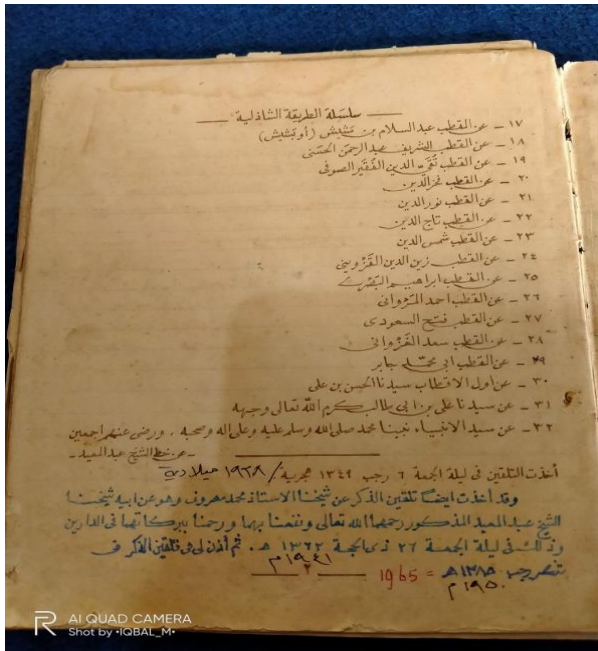 سلسلة الطريقة الشاذلية
١٧ - عن القطب عبد السلام بن مشيش (أو بشيش)
١٨ - عن القطب الشريف عبد الرحمن الحسنى
١٩ - عن القطب تقي الدين الفقير الصوفى
٢٠ - عن القطب فخر الدين
٢١ - عن القطب نور الدين
٢٢ - عن القطب تاج الدين
٢٣ - عن القطب شمس الدين
٢٤ - عن القطب زين الدين القزوينى
٢٥ - عن القطب ابراهيم البصرى
٢٦ - عن القطب احمد المروانى
٢٧ - عن القطب فتح السعودى
٢٨ - عن القطب سعد الغزوانى
٢٩ - عن القطب ابى محمد جابر
٣٠ - عن اول الاقطاب سيدنا الحسن بن على
٣١ - عن سيدنا على بن ابى طالب كرم الله تعالى وجهه
٣٢ - عن سيد الانبياء نبينا محمد صلى الله وسلم عليه وعلى اله وصحبه . ورضى عنهم اجمعين
- عن خط الشيخ عبد المعيد -
أخذت التلقين فى ليلة الجمعة ٦ رجب ١٣٤٩ هجرية / ميلادية
وقد أخذت ايضا تلقين الذكر عن شيخنا الاستاذ محمد معروف وهو عن ابيه شيخنا
الشيخ عبد المعيد المذكور رحمهما الله تعالى ونفعنا بهما ورحمنا ببركاتهما فى الدارين
وذلك فى ليلة الجمعة ٢٦ ذى الحجة ١٣٦٢ هـ. ثم أذن لى فى تلقين الذكر فى
١٩٤١م
رجب ١٣٨٥هـ = 1965
١٩٥٠م
٢
AI QUAD CAMERA
Shot by •IQBAL_M•